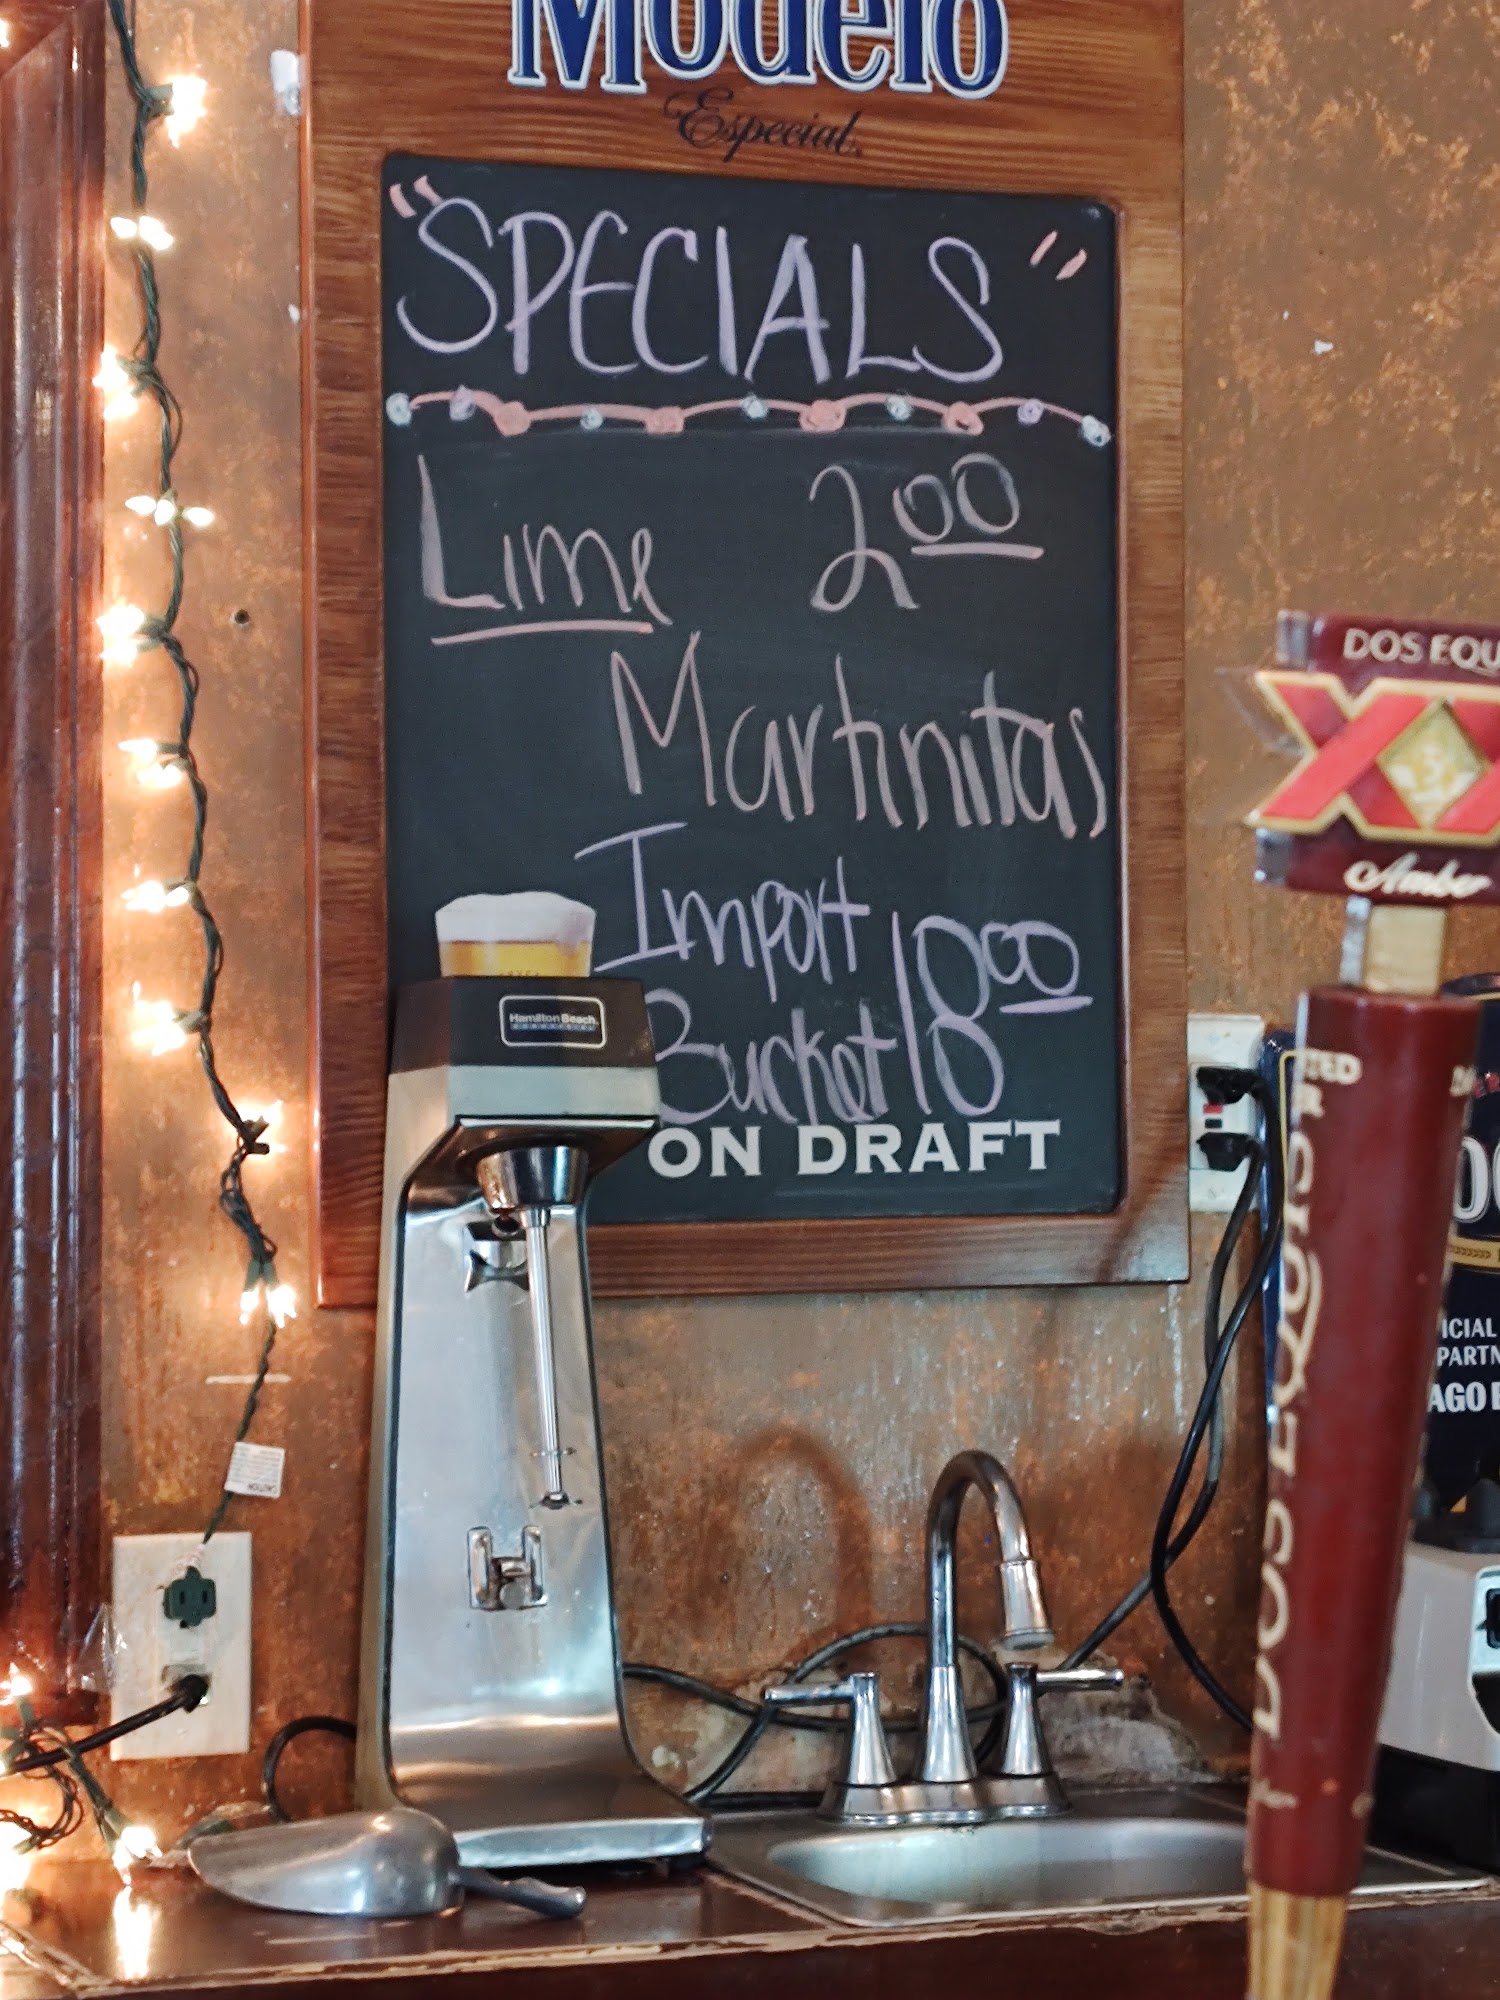 Modelo
Especial
"SPECIALS"
Lime 2.00
Martinitas
Import
Bucket 18.00
ON DRAFT
Hamilton Beach
COMMERCIAL
DOS EQU
XX
Amber
DOS EQUIS
ICIAL
PARTN
AGO
CAUTION